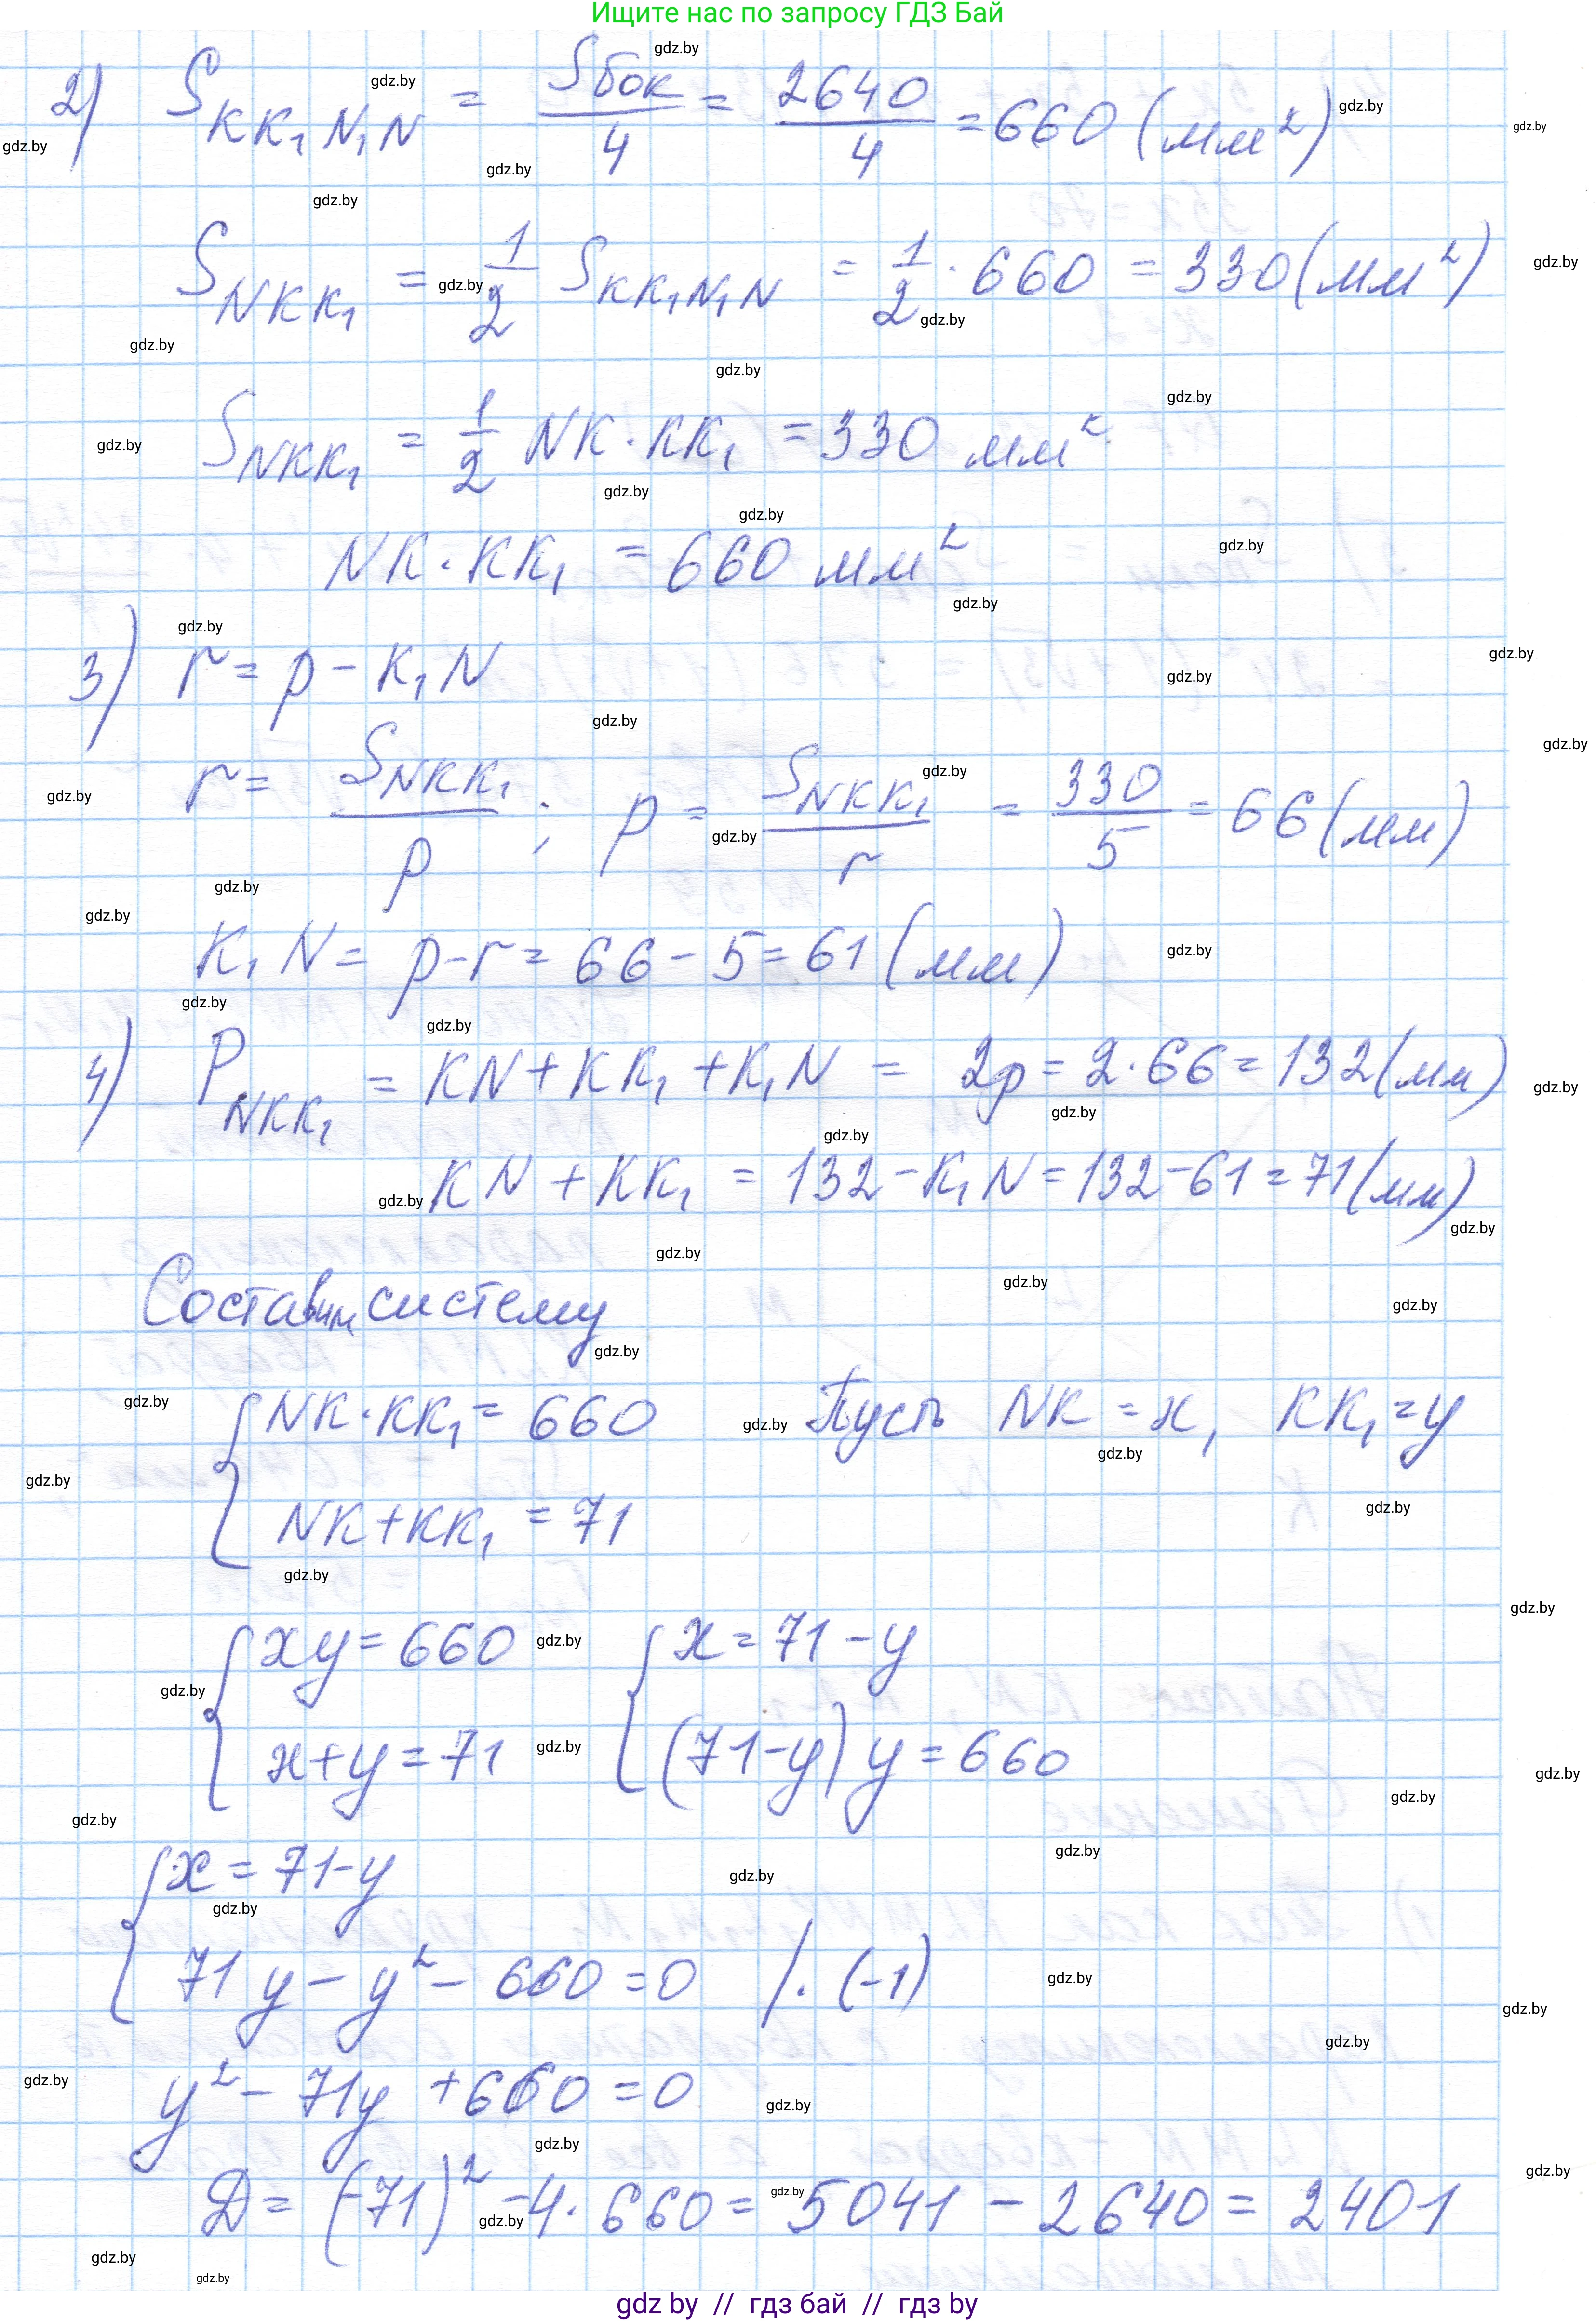 Ищите нас по запросу ГДЗ Бай
2) S_KK₁N₁N = Sбок/4 = 2640/4 = 660 (мм²)
S_NKK₁ = 1/2 S_KK₁N₁N = 1/2 · 660 = 330 (мм²)
S_NKK₁ = 1/2 NK · KK₁ = 330 мм²
NK · KK₁ = 660 мм²
3) r = p - K₁N
r = S_NKK₁/p ; p = S_NKK₁/r = 330/5 = 66 (мм)
K₁N = p - r = 66 - 5 = 61 (мм)
4) P_NKK₁ = KN + KK₁ + K₁N = 2p = 2 · 66 = 132 (мм)
KN + KK₁ = 132 - K₁N = 132 - 61 = 71 (мм)
Составим систему
{ NK · KK₁ = 660 Пусть NK = x, KK₁ = y
NK + KK₁ = 71
{ xy = 660 { x = 71 - y
x + y = 71 (71 - y) y = 660
{ x = 71 - y
71y - y² - 660 = 0 /· (-1)
y² - 71y + 660 = 0
Д = (-71)² - 4 · 660 = 5041 - 2640 = 2401
gdz by // гдз бай // гдз by